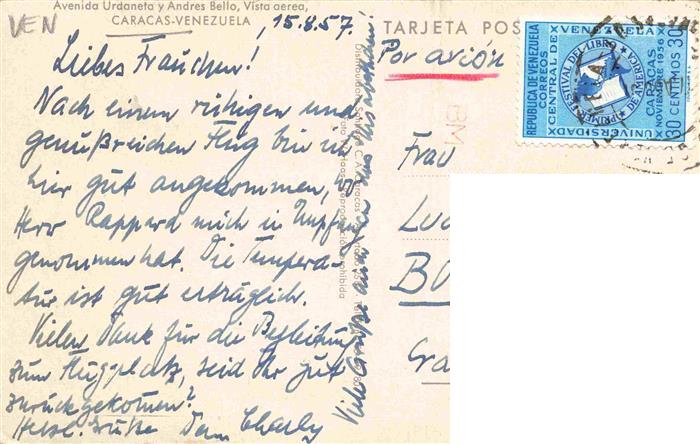 VEN
Avenida Urdaneta y Andres Bello, Vista aerea,
CARACAS-VENEZUELA
15.8.57.
Liebes Frauchen!
Nach einem ruhigen und
genußreichen Flug bin ich
hier gut angekommen, wo
Herr Rappard mich in Empfang
genommen hat. Die Tempera-
tur ist gut erträglich.
Vielen Dank für die Begleitung
zum Flugplatz, seid Ihr gut
zurückgekommen?
Herzl. Grüße Dein Charly
Viele Grüße auch
TARJETA POS
Por avión
BM
Frau
Luc
BO
Gra
REPUBLICA DE VENEZUELA
CORREOS
UNIVERSIDAD CENTRAL DE VENEZUELA
PRIMER FESTIVAL DEL LIBRO DE AMERICA
CARACAS
NOVIEMBRE 1956
30 CENTIMOS 30